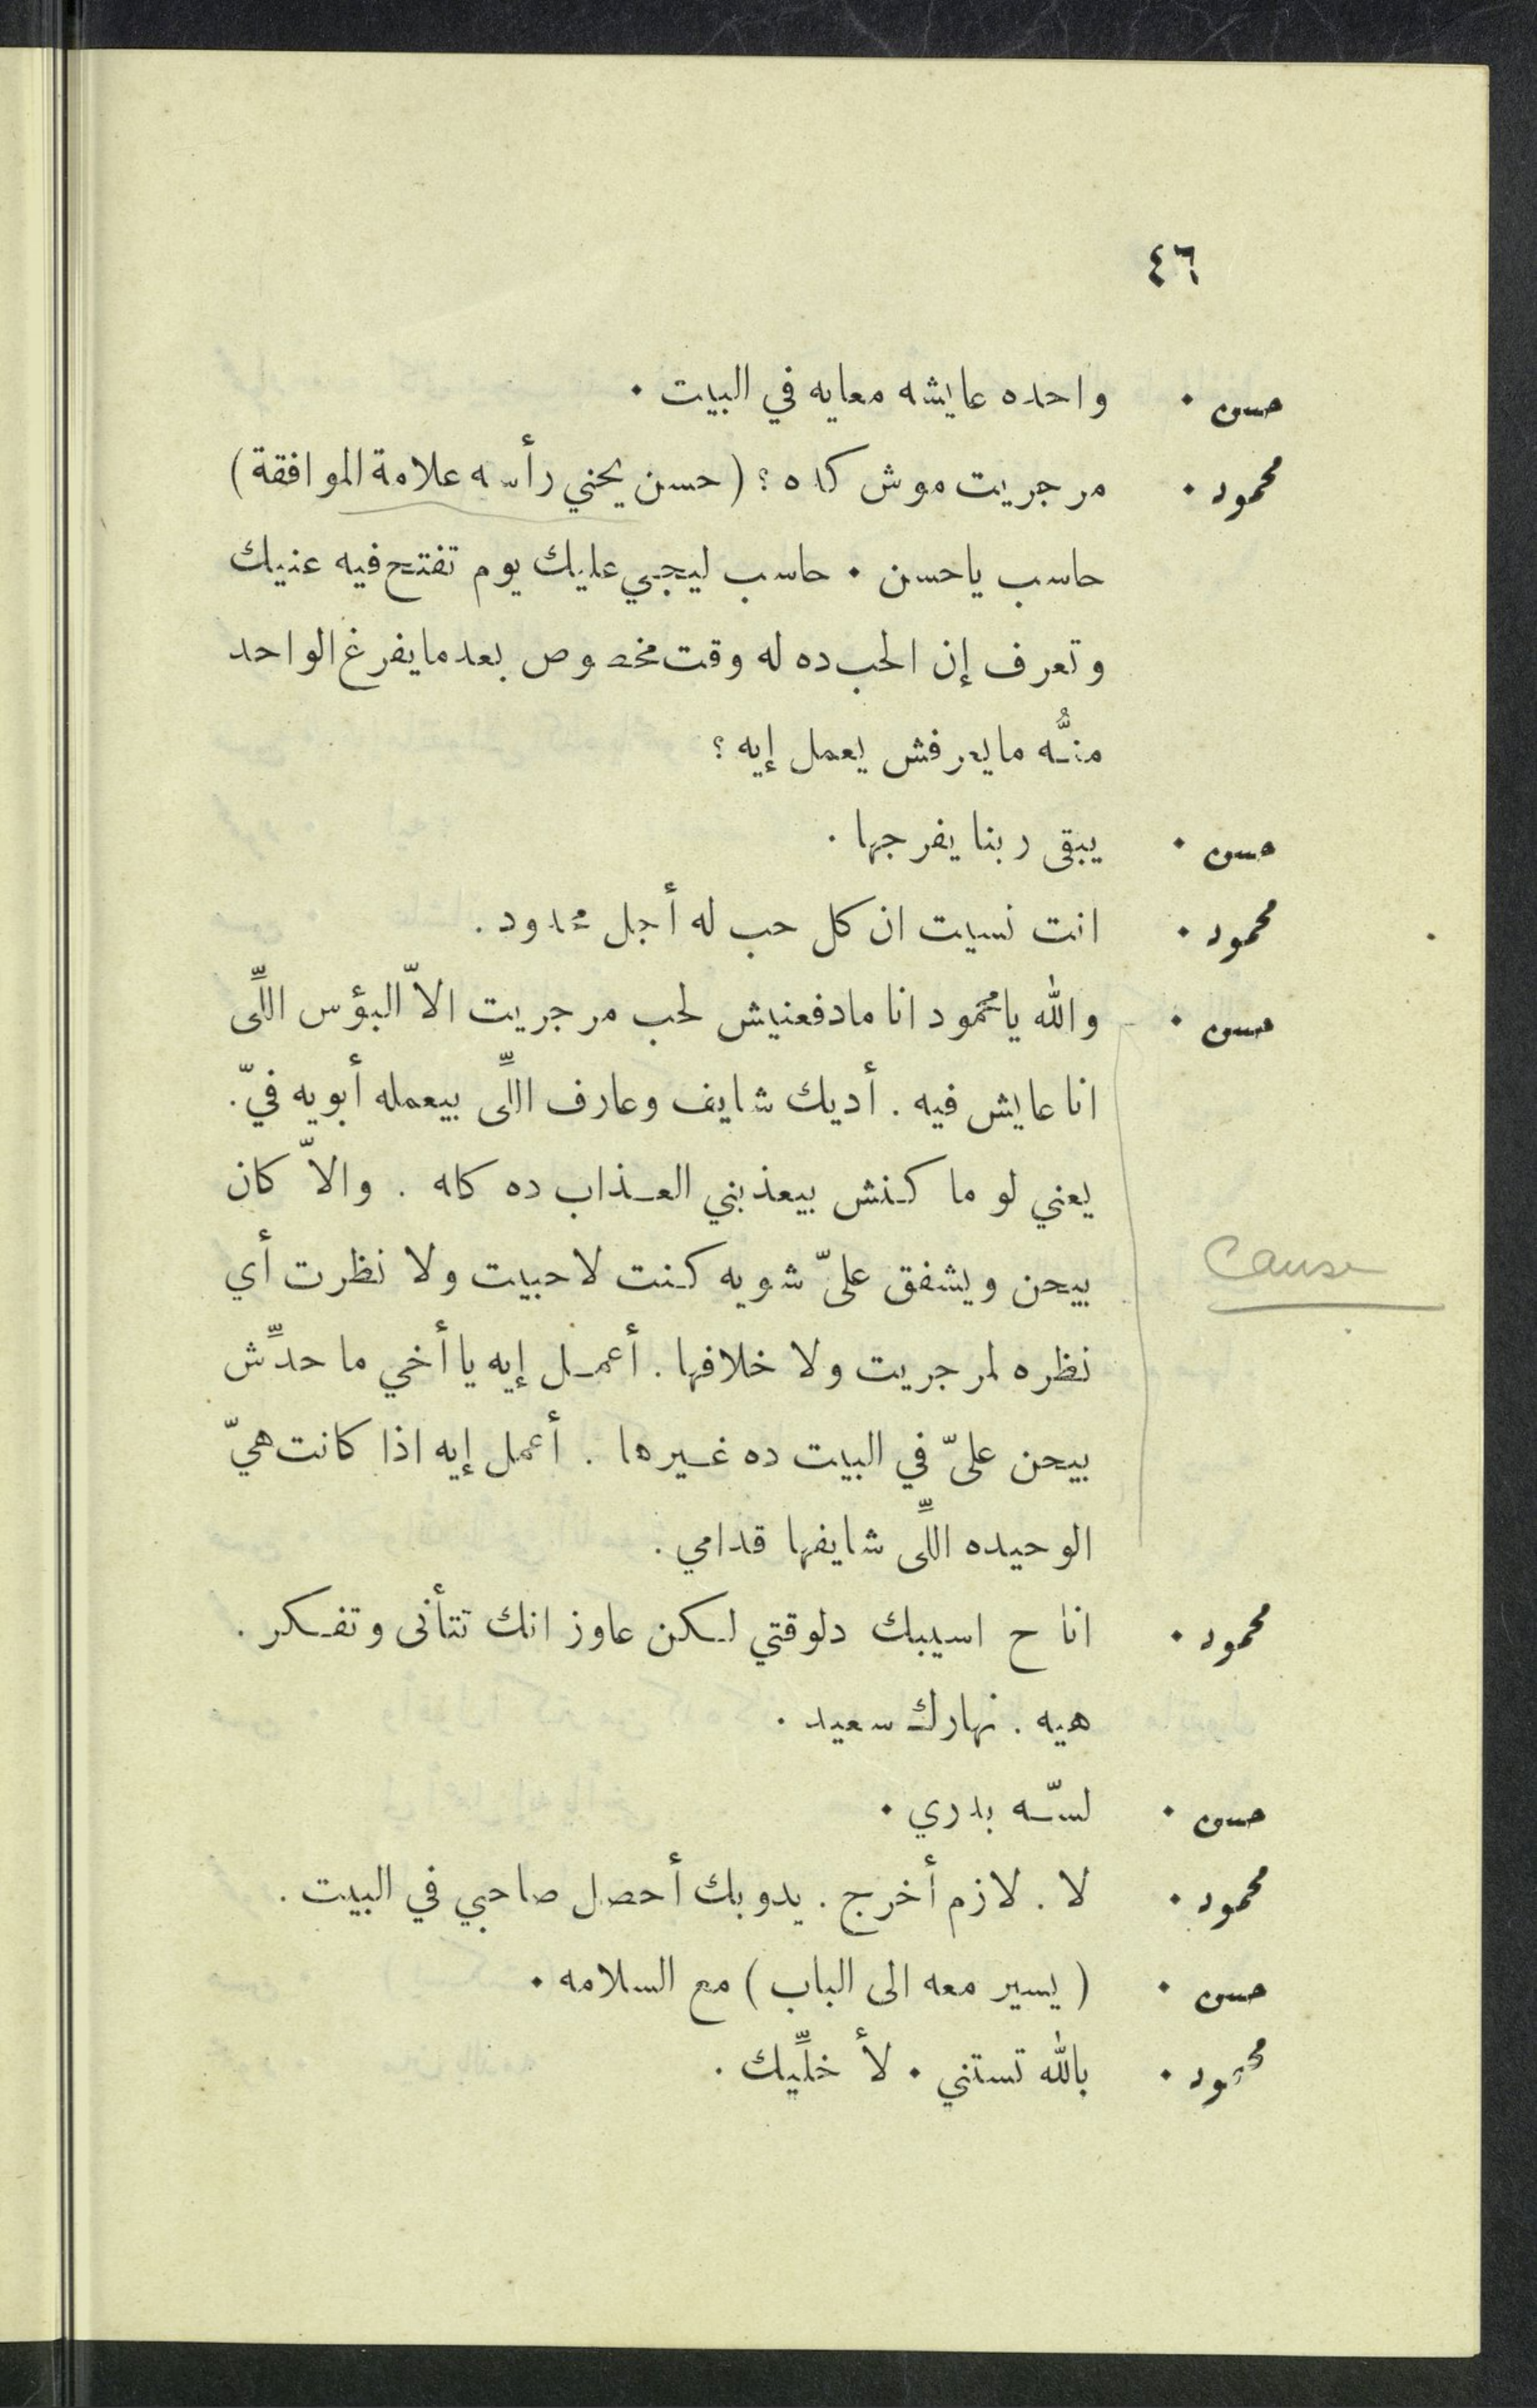 ٤٦
حسن . واحده عايشه معايه في البيت .
محمود . مرجريت موش كده ؟ (حسن يحني رأسه علامة الموافقة)
حاسب ياحسن . حاسب ليجي عليك يوم تفتح فيه عنيك
وتعرف إن الحب ده له وقت مخصوص بعد مايفرغ الواحد
منُّه مايعرفش يعمل إيه ؟
حسن . يبقى ربنا يفرجها .
محمود . انت نسيت ان كل حب له أجل محدود .
حسن . والله يامحمود انا مادفعنيش لحب مرجريت الاّ البؤس اللِّى
انا عايش فيه . أديك شايف وعارف اللِّى بيعمله أبويه فيّ .
يعني لو ما كنش بيعذبني العذاب ده كله . والاّ كان
بيحن ويشفق علىّ شويه كنت لاحبيت ولا نظرت أي
Cause
نظره لمرجريت ولا خلافها . أعمل إيه يا أخي ما حدِّش
بيحن علىّ في البيت ده غيرها . أعمل إيه اذا كانت هيّ
الوحيده اللِّى شايفها قدامي .
محمود . انا ح اسيبك دلوقتي لكن عاوز انك تتأنى وتفكر .
هيه . نهارك سعيد .
حسن . لسّه بدري .
محمود . لا . لازم أخرج . يدوبك أحصل صاحبي في البيت .
حسن . ( يسير معه الى الباب ) مع السلامه .
محمود . بالله تستني . لأ خلِّيك .